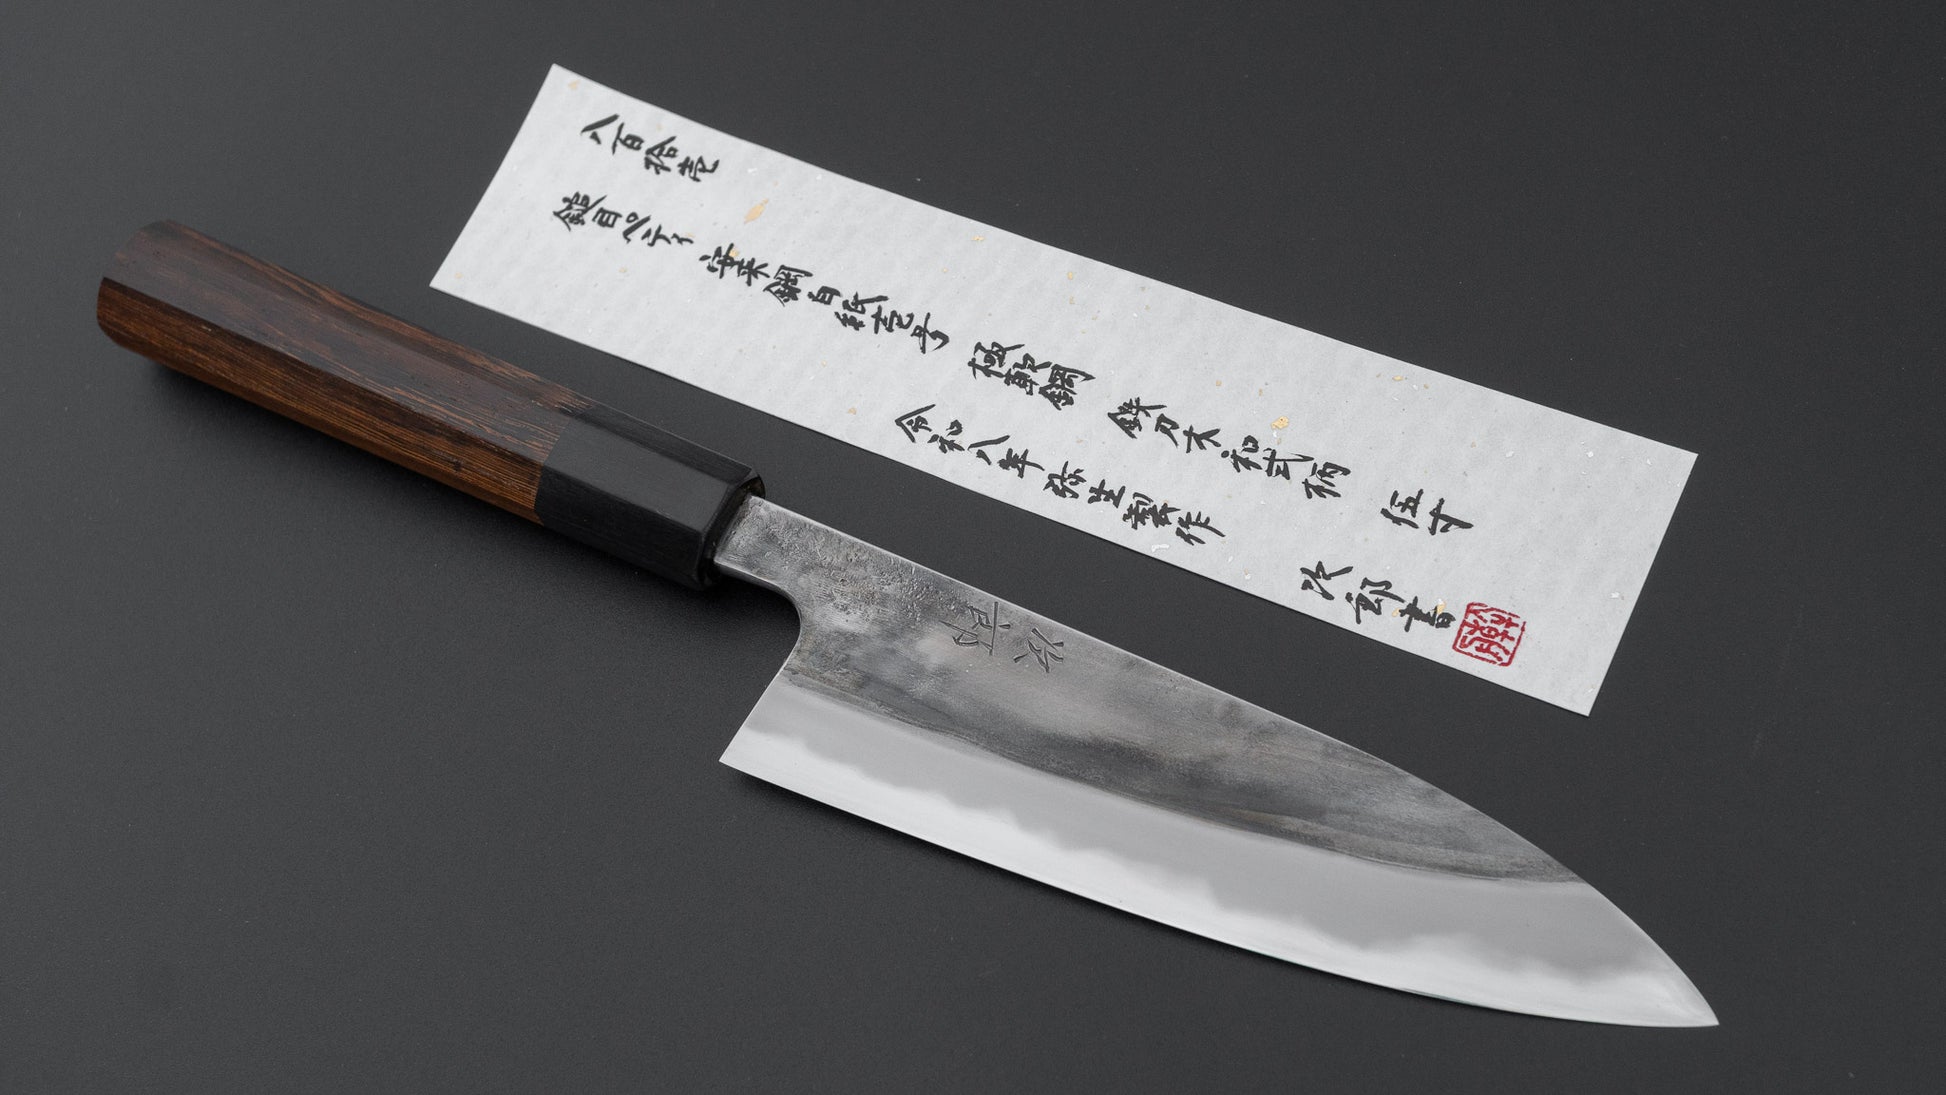 八百拾壱
鎚目ペティ 安来鋼白紙壱号 極軟鋼 鉄刀木和式柄 伍寸
令和八年弥生製作 次郎書
次郎